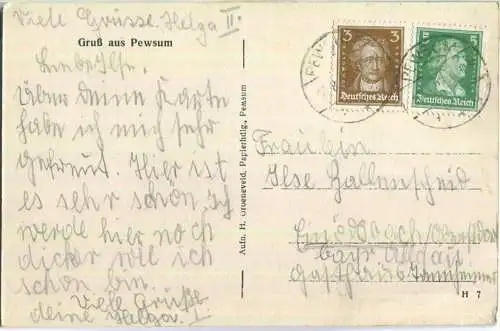 Viele Grüsse. Helga II.
Gruß aus Pewsum
Liebe Ilse.
Über deine Karte
habe ich mich sehr
gefreut. Hier ist
es sehr schön ich
werde hier noch
dicker wie ich
schon bin.
Viele Grüße
deine Helga I.
Aufn. H. Groeneveld, Papierhdlg., Pewsum
3 3
Deutsches Reich
5 5
Deutsches Reich
Fräulein
Ilse
bayr. Allgäu
Gasthaus
H 7